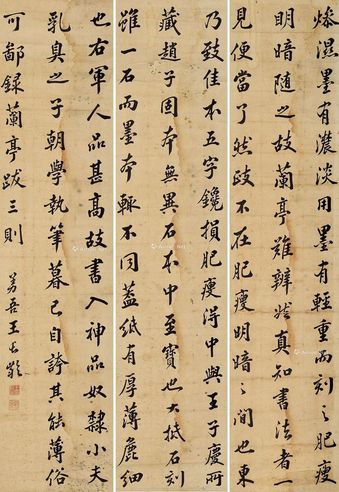 燥濕墨有濃淡用墨有輕重而刻之肥瘦
明暗隨之故蘭亭難辨然真知書法者一
見便當了然政不在肥瘦明暗之間也東
乃致佳本五字鑱損肥瘦得中與王子慶所
藏趙子固本無異石本中至寶也大抵石刻
雖一石而墨本輒不同蓋紙有厚薄麄細
也右軍人品甚高故書入神品奴隸小夫
乳臭之子朝學執筆暮已自誇其能薄俗
可鄙錄蘭亭跋三則
吾王